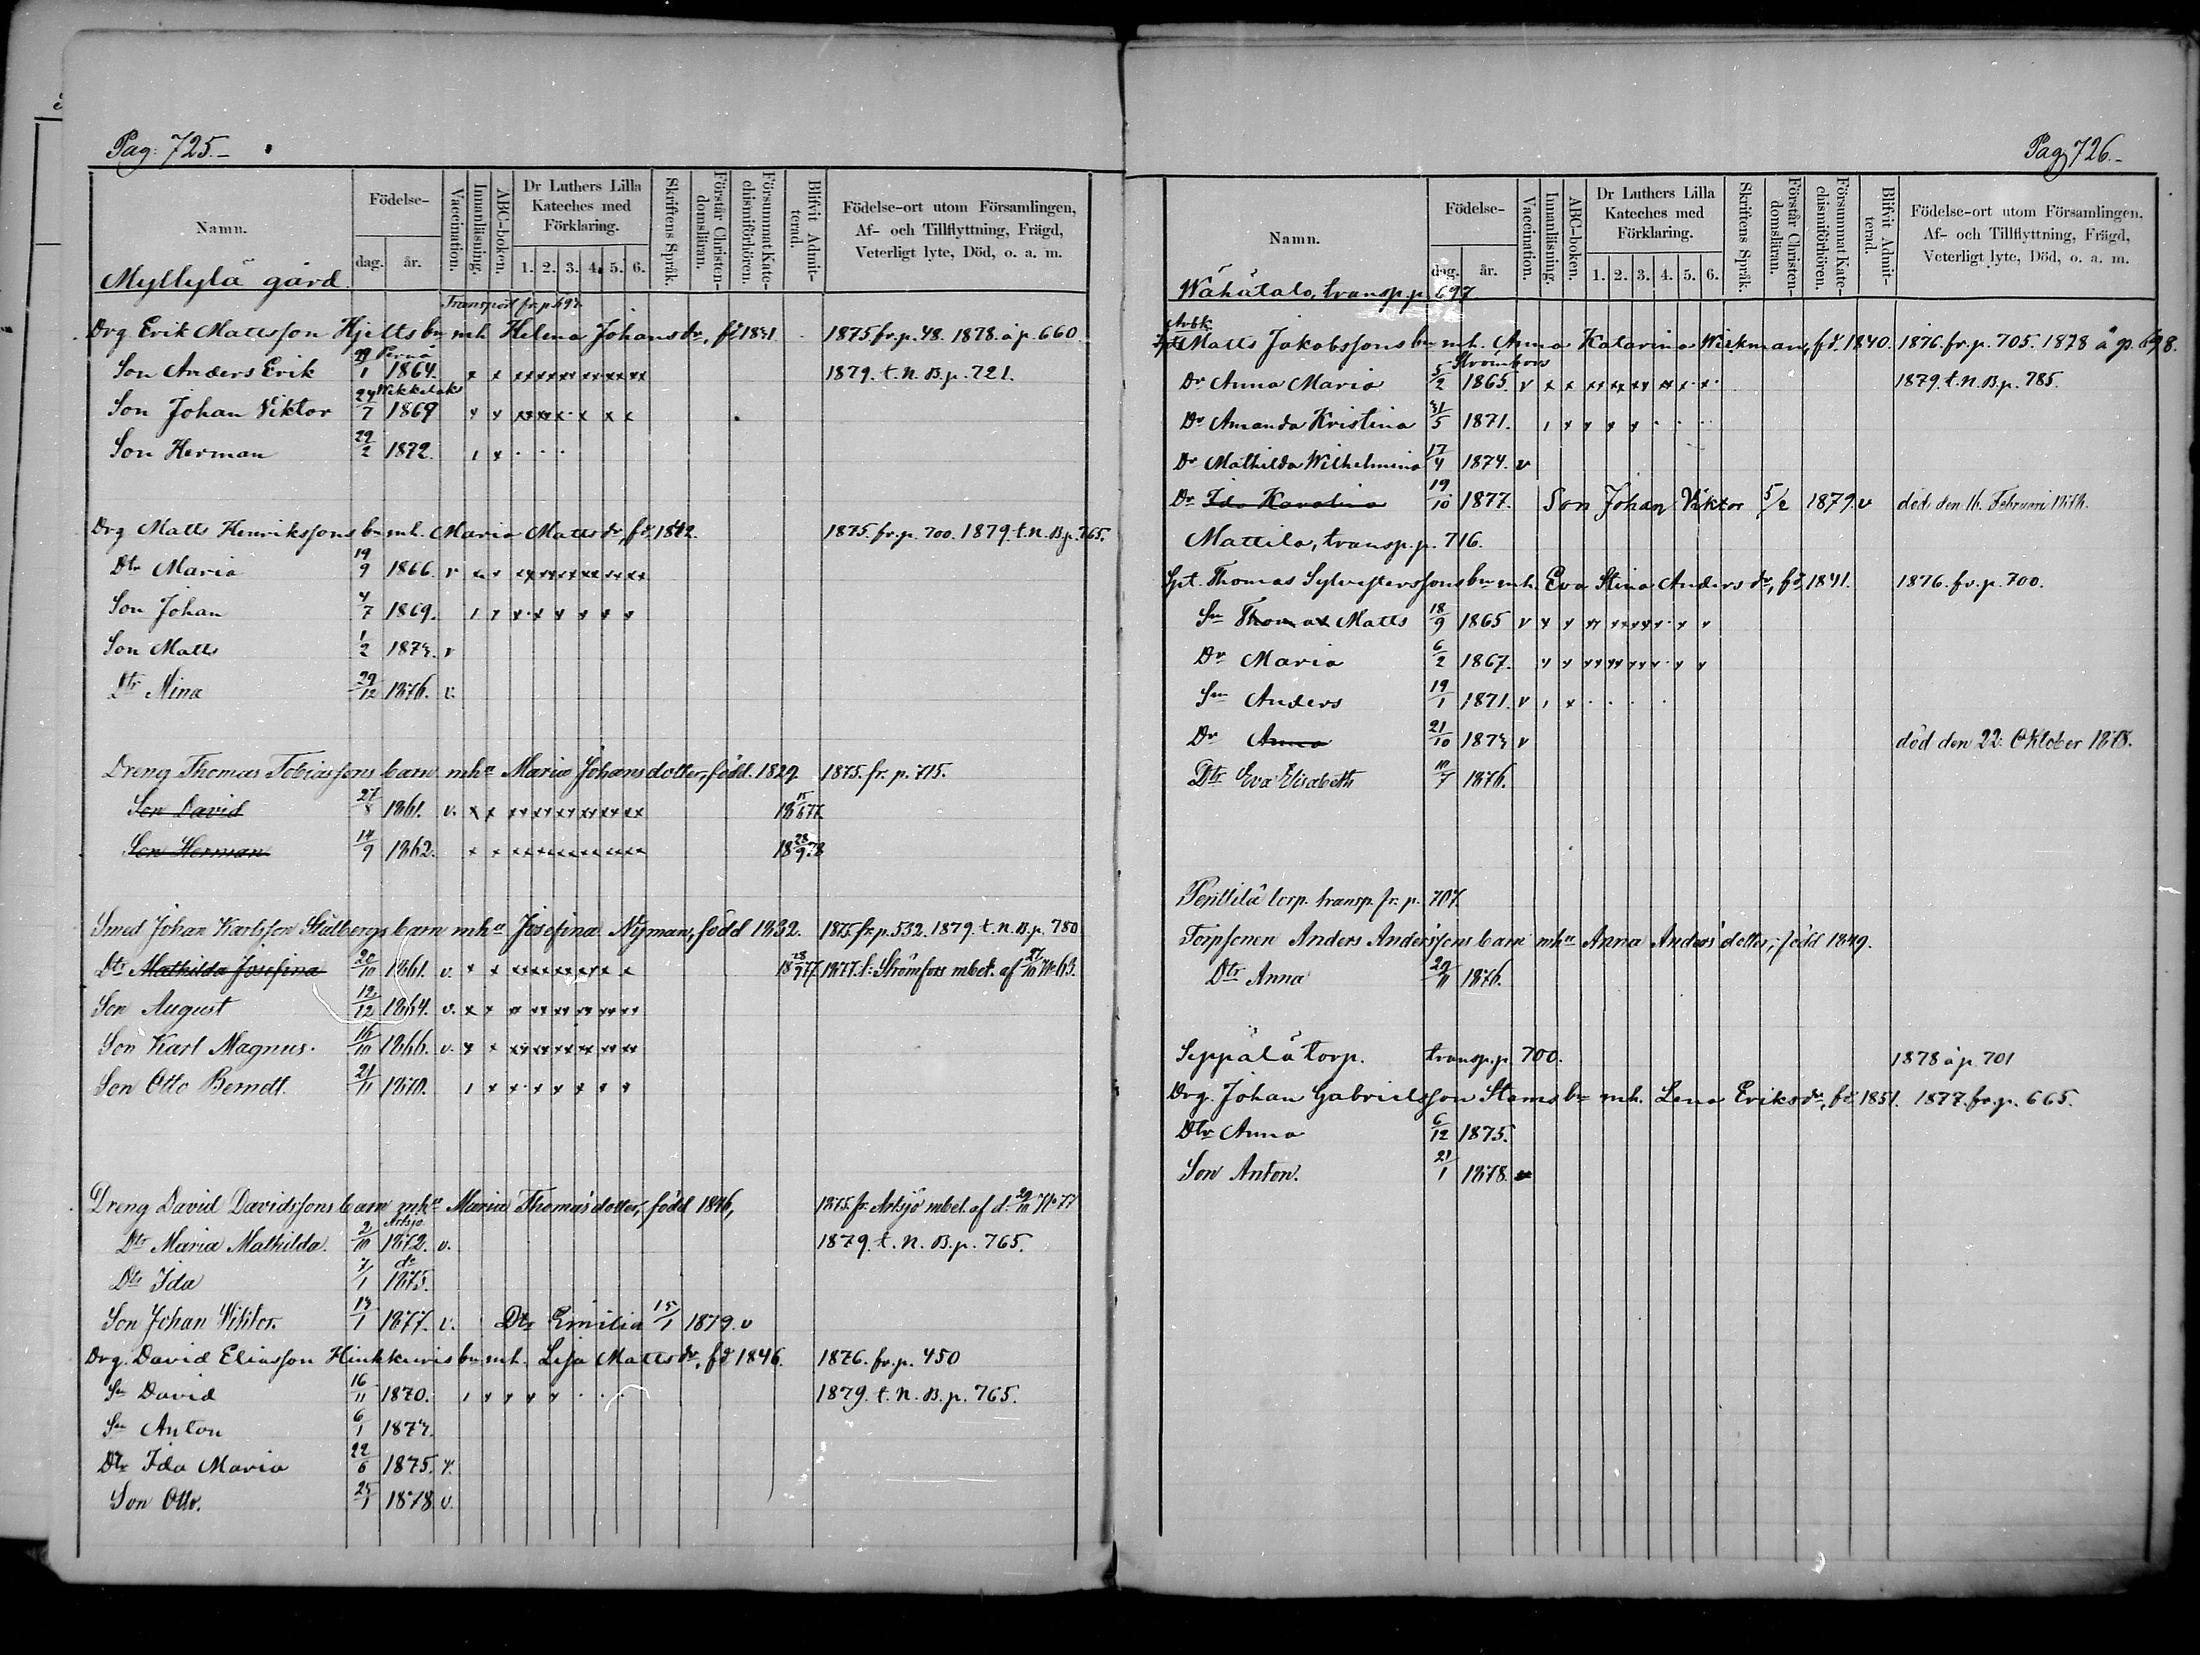 Pag: 725.
Namn.
Födelse-
dag.
år.
Vaccination.
Innanläsning.
ABC-boken.
Dr Luthers Lilla
Kateches med
Förklaring.
1. 2. 3. 4. 5. 6.
Skriftens Språk.
Förstår Christen-
domsläran.
Försummat Kate-
chismiförhören.
Blifvit Admit-
terad.
Födelse-ort utom Församlingen,
Af- och Tillflyttning, Frägd,
Veterligt lyte, Död, o. a. m.
Myllylä gård
Transport fr. p. 697
Drg. Erik Mattsson Hjelts bn mh. Helena Johansdr, fd 1831. 1875. fr. p. 48. 1878. å p. 660
Son Anders Erik 29/1 Pernå 1864. x x xx xx xx xx xx xx 1879. t. N. B. p. 721.
Son Johan Viktor 24/7 1869
Son Herman 29/2 1872.
Drg Matts Henrikssons bn mh. Maria Mattsdr, fd. 1842. 1875. fr. p. 700. 1879. t. N. B. p. 765.
Dtr Maria 19/9 1866. v
Son Johan 4/7 1869.
Son Matts 1/2 1873. v
Dtr Mina 29/12 1876. v.
Dreng Thomas Tobiassons barn mha Maria Johansdotter, född. 1829 1875. fr. p. 715.
Son David 27/8 1861. v. 18 15/6 77
Son Herman 14/9 1862. 18 28/9 78
Smed Johan Karlsson Stålbergs barn mha Josefina Nyman, född 1832. 1875. fr. p. 532. 1879. t. N. B. p. 780
Dtr Mathilda Josefina 20/10 1861. v. 18 28/9 77 1877. t. Strömfors mbet. af 27/10 No 63.
Son August 12/12 1864. v.
Son Karl Magnus. 16/10 1866. v.
Son Otto Berndt. 21/11 1870.
Dreng David Davidssons barn mha Maria Thomasdotter, född 1846, 1875. fr. Artsjö mbet. af d. 29/10 No 77
Dtr Maria Mathilda. 2/10 Artsjö 1872. v. 1879. t. N. B. p. 765.
Dtr Ida 7/1 do 1875.
Son Johan Viktor. 13/1 1877. v. Dtr Emilia 15/1 1879. v
Drg. David Eliasson Hinkkuris bn mh. Lisa Mattsdr, fd 1846. 1876. fr. p. 450
Sn David 16/11 1870. 1879. t. N. B. p. 765.
Sn Anton 6/1 1873.
Dtr Ida Maria 22/6 1875. v.
Son Otto. 23/1 1878 v.
Pag 726.
Namn.
Födelse-
dag.
år.
Vaccination.
Innanläsning.
ABC-boken.
Dr Luthers Lilla
Kateches med
Förklaring.
1. 2. 3. 4. 5. 6.
Skriftens Språk.
Förstår Christen-
domsläran.
Försummat Kate-
chismiförhören.
Blifvit Admit-
terad.
Födelse-ort utom Församlingen,
Af- och Tillflyttning, Frägd,
Veterligt lyte, Död, o. a. m.
Wähätalo, transp. p. 697
Arbk.
Matts Jakobssons bn mh. Anna Katarina Wirkman, fd. 1840. 1876. fr. p. 705. 1878 å p. 698.
Dr Anna Maria 5/2 Strömfors 1865. v 1879. t. N. B. p. 785.
Dr Amanda Kristina 31/5 1871.
Dr Mathilda Wilhelmina 17/4 1874. v
Dr Ida Karolina 19/10 1877. Son Johan Viktor 5/2 1879. v död den 16. Februari 1878.
Mattila, transp. p. 716.
Spt. Thomas Sylvesterssons bn mh. Eva Stina Andersdr, fd. 1841. 1876. fr. p. 700.
Sn Thomas Matts 18/9 1865 v
Dr Maria 6/2 1867.
Sn Anders 19/1 1871. v
Dr Anna 21/10 1873 v död den 22. Oktober 1878.
Dtr Eva Elisabeth 10/7 1876.
Penttilä torp. transp. fr. p. 707.
Torpsonen Anders Anderssons barn mha Anna Andersdotter, född 1849.
Dtr Anna 29/11 1876.
Seppälä torp. transp. p. 700. 1878 å p. 701
Drg. Johan Gabrielsson Stams bn mh. Lena Eriksdr, fd 1851. 1877. fr. p. 665.
Dtr Anna 6/12 1875.
Son Anton. 21/1 1878. v